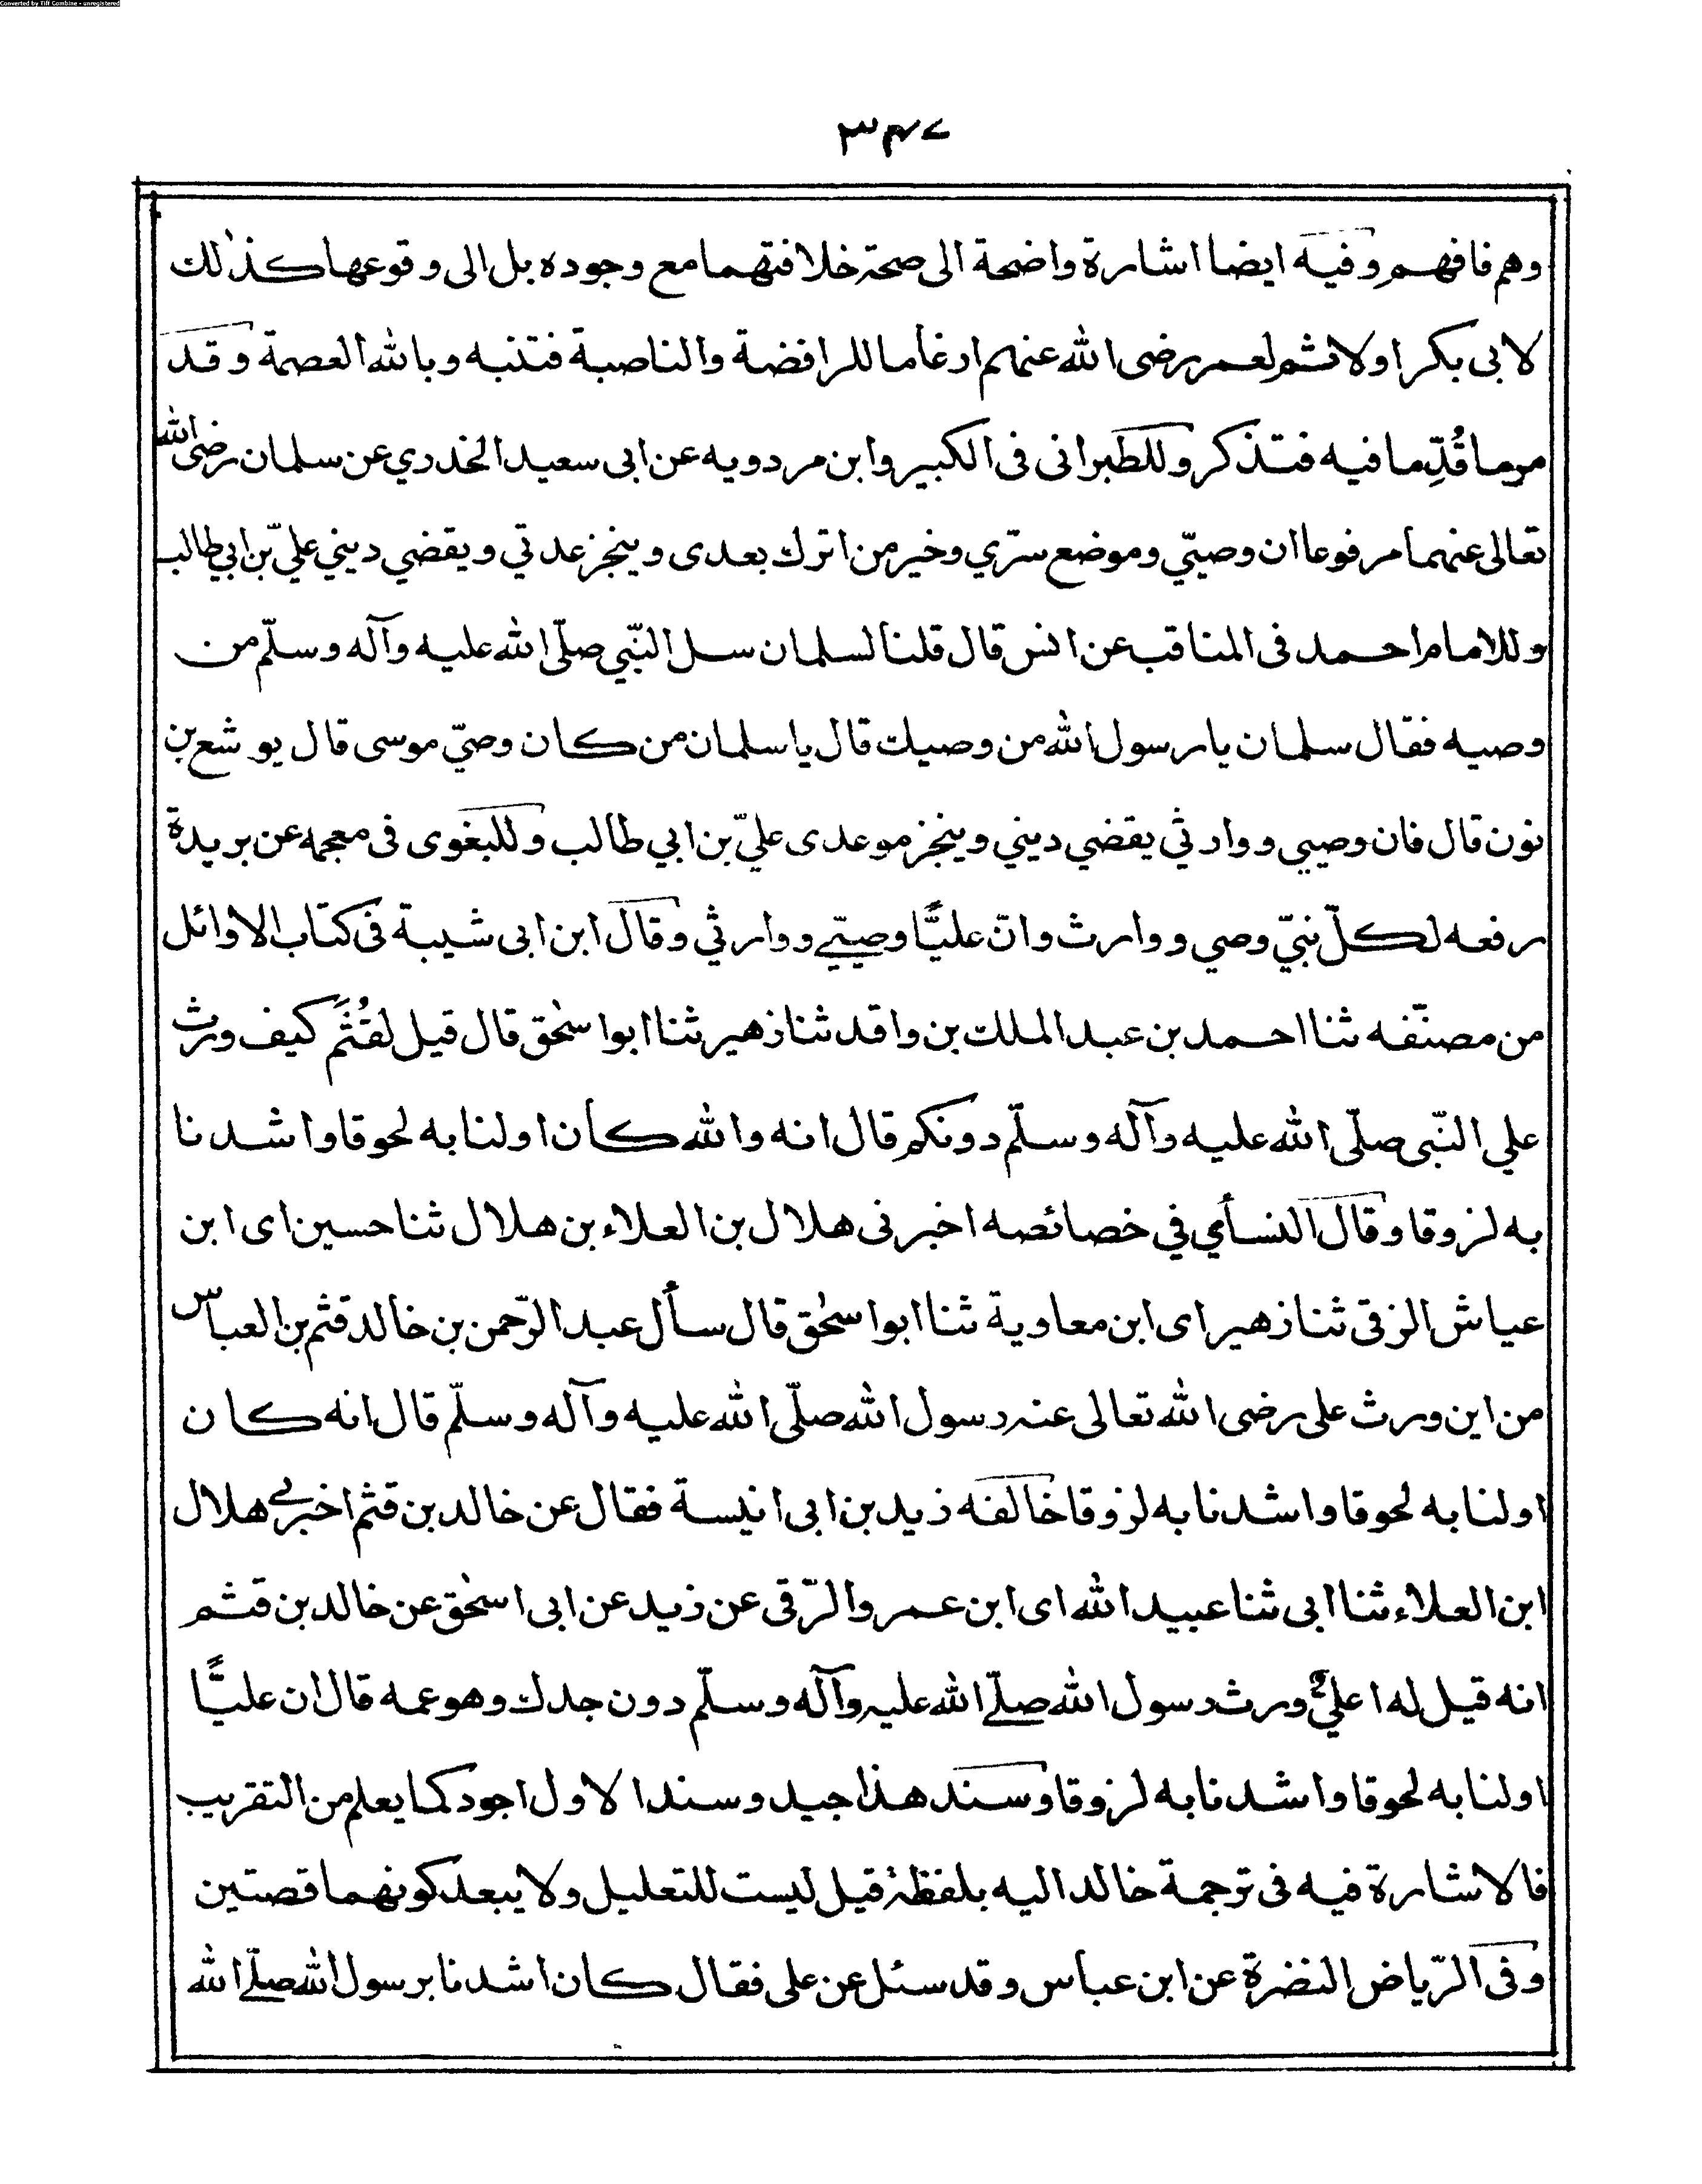 Converted by Tiff Combine - unregistered
۳۴۷
وهم فافهم وفيه ايضا اشارة واضحة الى صحة خلافتهما مع وجوده بل الى وقوعها كذلك
لابى بكر اولا ثم لعمر رضى الله عنهم ارغاما للرافضة والناصبة فتنبه وبالله العصمة وقد
مر ما قُدِّم ما فيه فتذكر وللطبرانى فى الكبير وابن مردويه عن ابى سعيد الخدري عن سلمان رضى الله
تعالى عنهما مرفوعا ان وصيّي وموضع سرّي وخير من اترك بعدى وينجز عدتي ويقضي ديني عليّ بن ابي طالب
وللامام احمد فى المناقب عن انس قال قلنا لسلمان سل النّبي صلّى الله عليه وآله وسلّم من
وصيه فقال سلمان يا رسول الله من وصيك قال يا سلمان من كان وصيّ موسى قال يوشع بن
نون قال فان وصيي ووارثي يقضي ديني وينجز موعدى عليّ بن ابي طالب وللبغوى فى معجمه عن بريدة
رفعه لكلّ نبيّ وصي ووارث وانّ عليًّا وصيّي ووارثي وقال ابن ابى شيبة فى كتاب الاوائل
من مصنّفه ثنا احمد بن عبد الملك بن واقد ثنا زهير ثنا ابوا سحٰق قال قيل لقُثَم كيف ورث
علي النّبى صلّى الله عليه وآله وسلّم دونكم قال انه والله كان اولنا به لحوقا واشدنا
به لزوقا وقال النسأي في خصائصه اخبرنى هلال بن العلاء بن هلال ثنا حسين اى ابن
عياش الزقى ثنا زهير اى ابن معاوية ثنا ابوا سحٰق قال سأل عبد الرّحمن بن خالد قثم بن العباس
من اين ورث على رضى الله تعالى عنه رسول الله صلّى الله عليه وآله وسلّم قال انه كان
اولنا به لحوقا واشدنا به لزوقا خالفه زيد بن ابى انيسة فقال عن خالد بن قثم اخبرني هلال
ابن العلاء ثنا ابى ثنا عبيد الله اى ابن عمرو الرّقى عن زيد عن ابى اسحٰق عن خالد بن قثم
انه قيل له اعليٌّ ورث رسول الله صلّى الله عليه وآله وسلّم دون جدك وهو عمه قال ان عليًّا
اولنا به لحوقا واشدنا به لزوقا وسند هذا جيد وسند الاول اجود كما يعلم من التقريب
فالاشارة فيه فى ترجمة خالد اليه بلفظة قيل ليست للتعليل ولا يبعد كونهما قصتين
وفى الرّياض النضرة عن ابن عباس وقد سئل عن على فقال كان اشدنا برسول الله صلّى الله